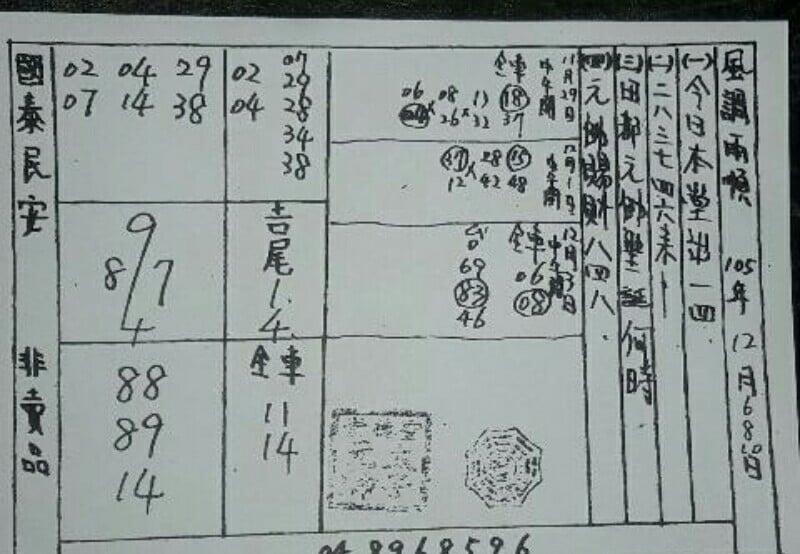 風調雨順 105年 12月6 8 10日
(一)今日本堂出一四
(二)二八三七四六来
(三)田都元帥聖誕何時
(四)元帥賜財八四八
11月29日
中午開
全車
06 08 13 18
26 32 37
12月1日
中午開
28 15
12 42 48
12月3日
中午開
全車
06
08
台
69
83
46
07
02 29
04 28
34
38
吉尾1.4.
全車
11
14
02 04 29
07 14 38
9
8/7
4
88
89
14
國泰民安 非賣品
04 8968596